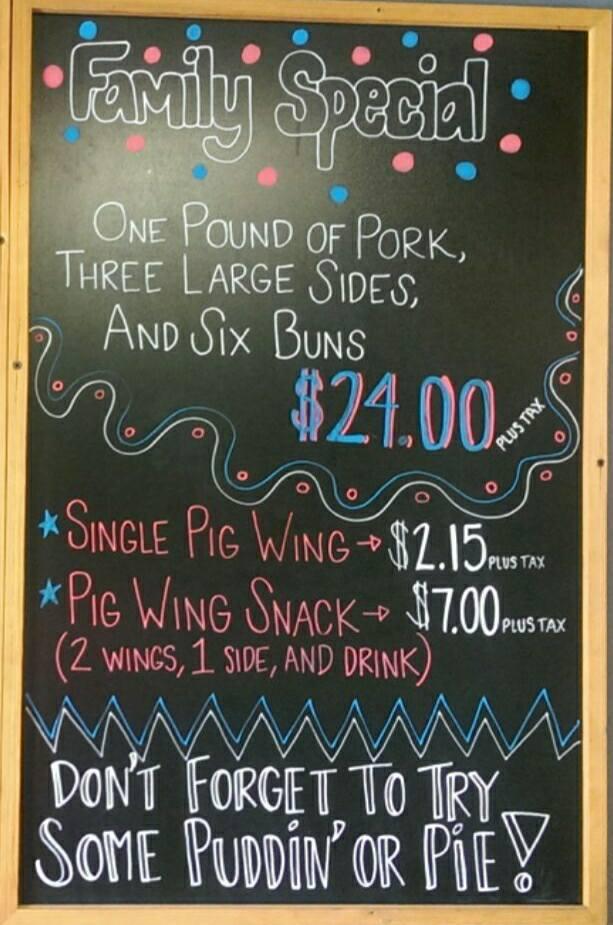 Family Special
ONE POUND OF PORK,
THREE LARGE SIDES,
AND SIX BUNS
$24.00 PLUS TAX
SINGLE PIG WING → $2.15 PLUS TAX
PIG WING SNACK → $7.00 PLUS TAX
(2 WINGS, 1 SIDE, AND DRINK)
DON'T FORGET TO TRY
SOME PUDDIN' OR PIE!